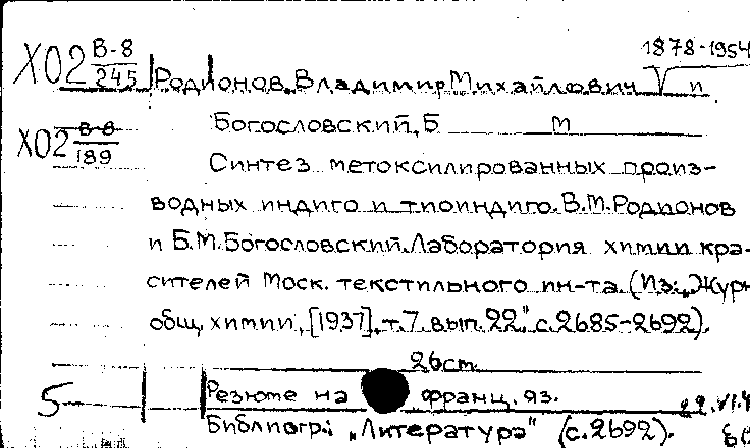 1878-1954
Х02 В-8/245 Родионов, Владимир Михайлович и
Х02 В-8/189 Богословский, Б М
Синтез метоксилированных произ-
водных индиго и тиоиндиго. В.М.Родионов
и Б.М.Богословский. Лаборатория химии кра-
сителей Моск. текстильного ин-та. (Из: „Журн
общ. химии", [1937], т.7 вып. 22." с.2685-2692).
26 cm.
5 Резюме на франц. яз.
Библиогр.: „Литература" (с.2692).